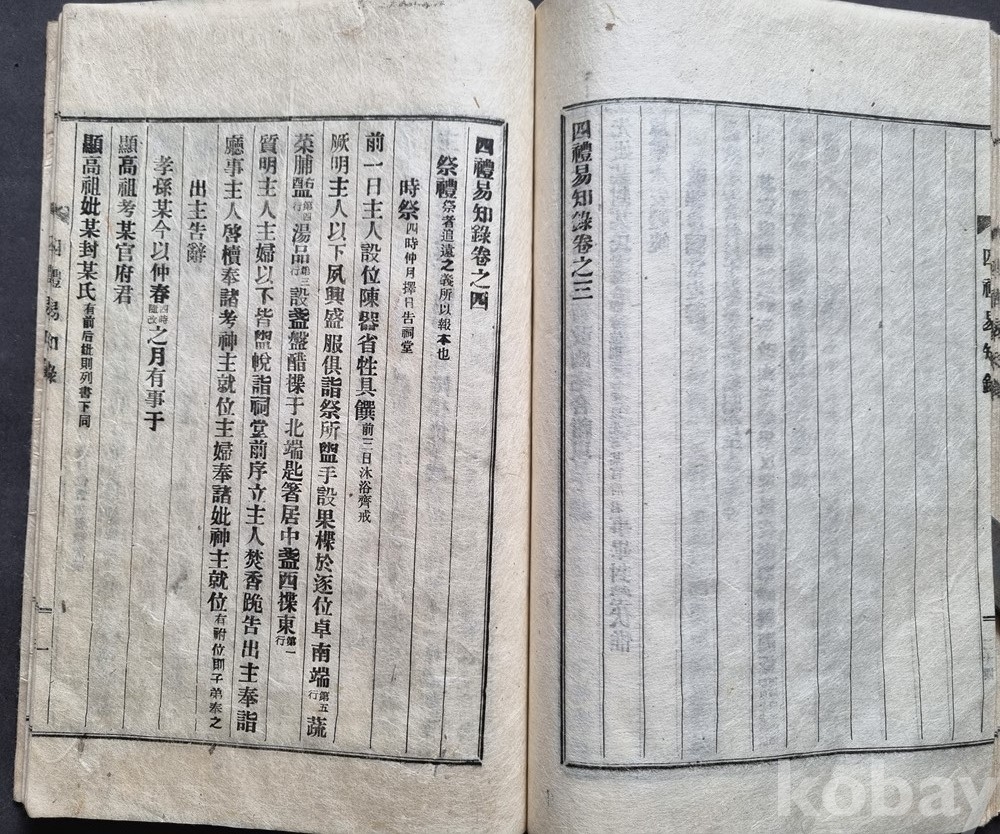 四禮易知錄卷之三
四禮易知錄卷之四
祭禮祭者追遠之義所以報本也
時祭四時仲月擇日告祠堂
前一日主人設位陳器省牲具饌前三日沐浴齊戒
厥明主人以下夙興盛服俱詣祭所盥手設果楪於逐位卓南端第五行蔬
菜脯醢右第四行湯品第三行設盞盤醋楪于北端匙箸居中盞西楪東第一行
質明主人主婦以下皆盥帨詣祠堂前序立主人焚香跪告出主奉詣
廳事主人啓櫝奉諸考神主就位主婦奉諸妣神主就位有祔位則子弟奉之
出主告辭
孝孫某今以仲春四時隨改之月有事于
顯高祖考某官府君
顯高祖妣某封某氏有前后妣則列書下同
四禮易知錄
一
四禮易知錄
kobay